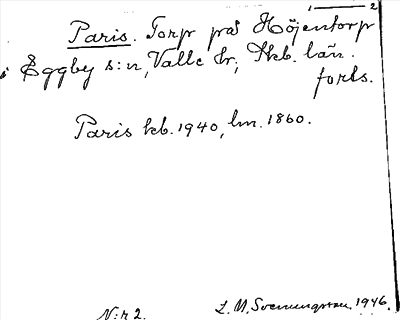 1 — 2
Paris. Torp på Höjentorp
i Eggby s:n, Valle hr; Skb. län.
forts.
Paris kb. 1940, lm. 1860.
N:r 2. L. M. Svenungsson. 1946.